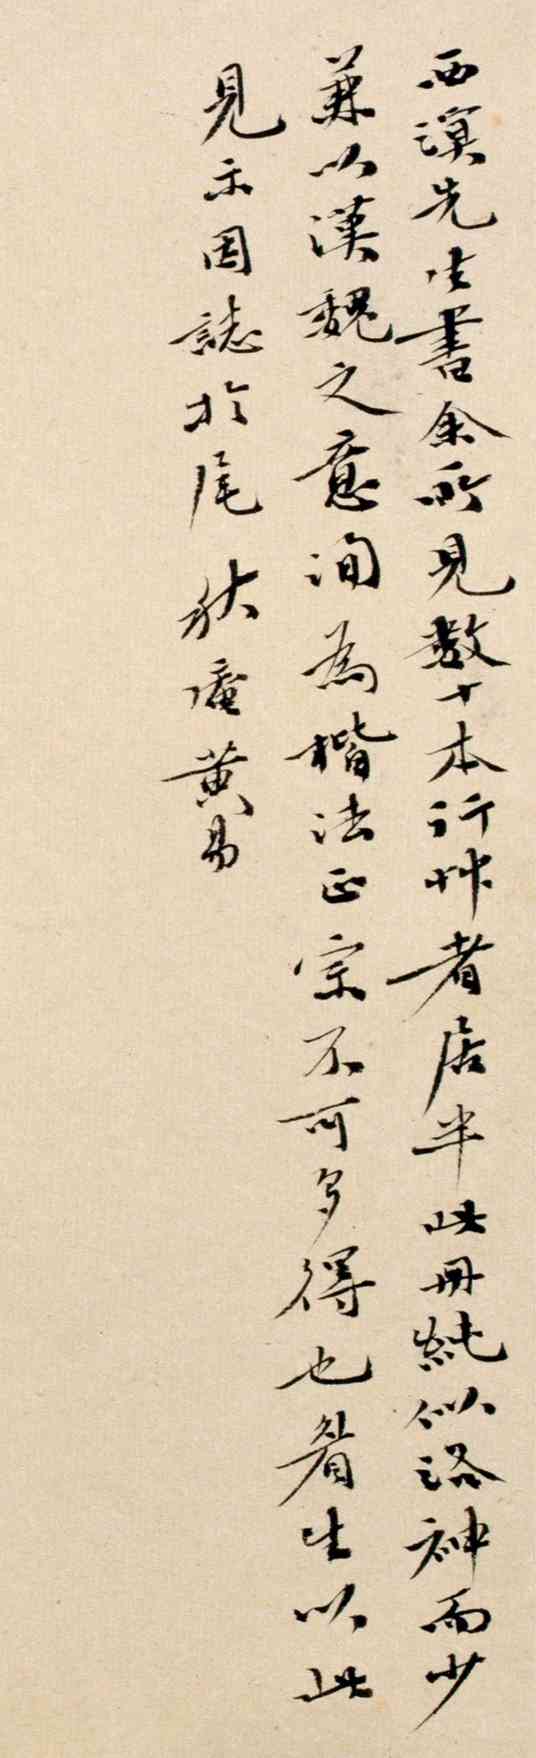 西溟先生書余所見數十本行艸者居半此冊純似洛神而少
兼以漢魏之意洵為楷法正宗不可多得也眷生以此
見示因誌於尾 秋盦黃易